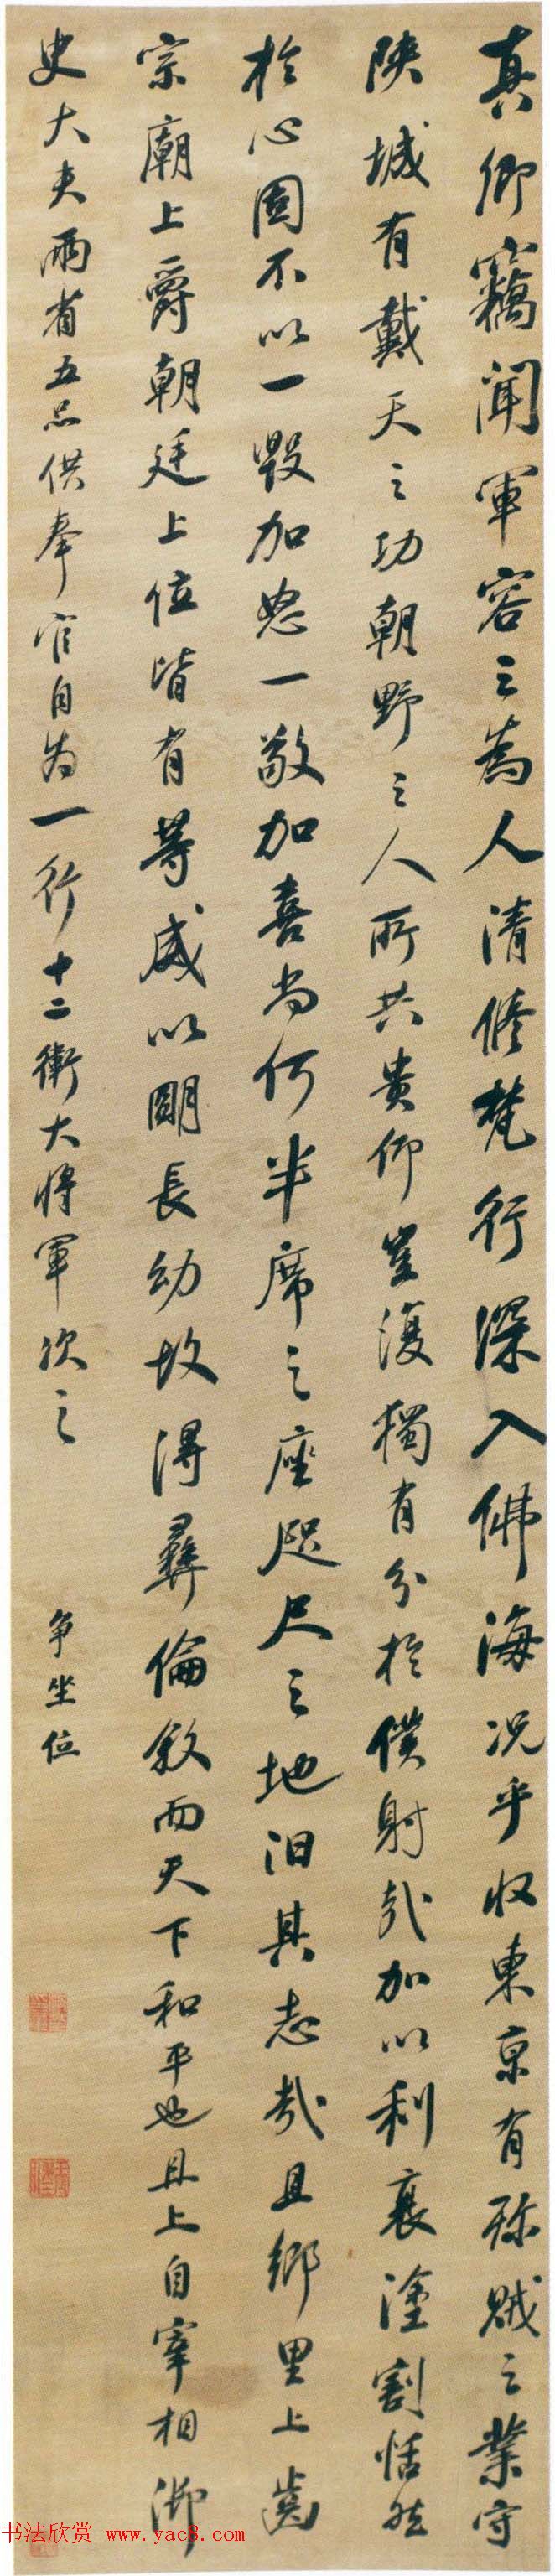 真卿竊聞軍容之為人清修梵行深入佛海況乎收東京有殄賊之業守
陝城有戴天之功朝野之人所共貴仰豈復獨有分於僕射哉加以利衰塗割恬然
於心固不以一毀加怒一敬加喜尚何半席之座咫尺之地汩其志哉且鄉里上齒
宗廟上爵朝廷上位皆有等威以明長幼故得彝倫敘而天下和平也且上自宰相御
史大夫兩省五品供奉官自為一行十二衛大將軍次之
争坐位
书法欣赏 www.yac8.com